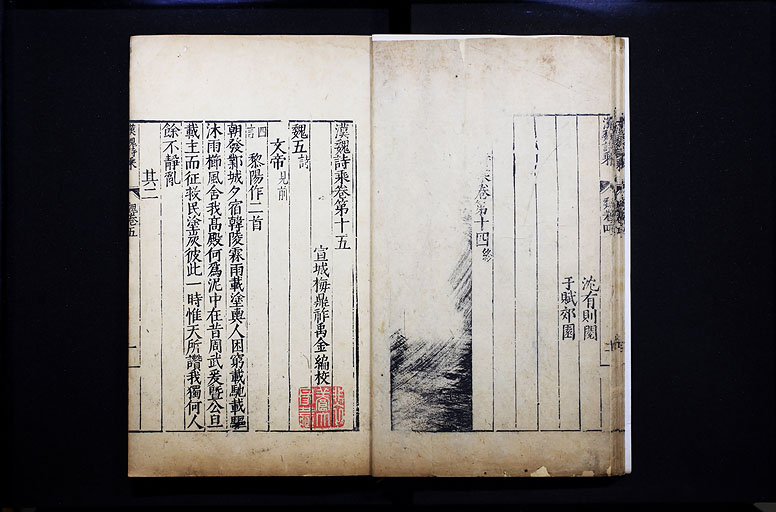 沈有則閱
于賦郊園
乘卷第十四終
漢魏詩乘卷第十五
宣城梅鼎祚禹金編校
魏五詩
文帝見前
四言 黎陽作二首
朝發鄴城夕宿韓陵霖雨載塗輿人困窮載馳載驅
沐雨櫛風舍我高殿何爲泥中在昔周武爰暨公旦
載主而征救民塗炭彼此一時惟天所讚我獨何人
餘不靜亂
其二
漢魏詩乘 魏卷五 一